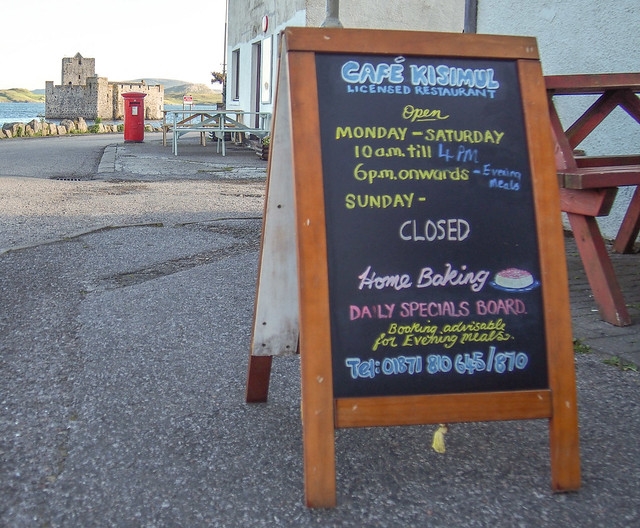 CAFÉ KISIMUL
LICENSED RESTAURANT
Open
MONDAY - SATURDAY
10 a.m. till 4 PM
6 p.m. onwards - Evening meals
SUNDAY -
CLOSED
Home Baking
DAILY SPECIALS BOARD.
Booking advisable
for Evening meals.
Tel: 01871 810 645/870